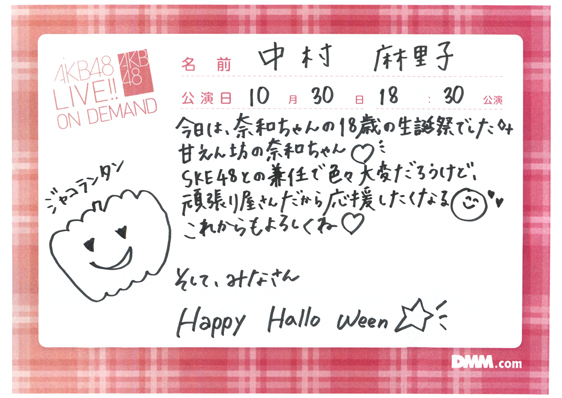 AKB48
LIVE!!
ON DEMAND
AKB
48
名前 中村 麻里子
公演日 10月30日 18:30公演
今日は、奈和ちゃんの18歳の生誕祭でした
甘えん坊の奈和ちゃん♡
SKE48との兼任で色々大変だろうけど、
頑張り屋さんだから応援したくなる
これからもよろしくね♡
ジャコランタン
そして、みなさん
Happy Hallo ween☆
DMM.com